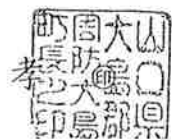 山口県
大島郡
周防大島
町長之印
孝 ㊞